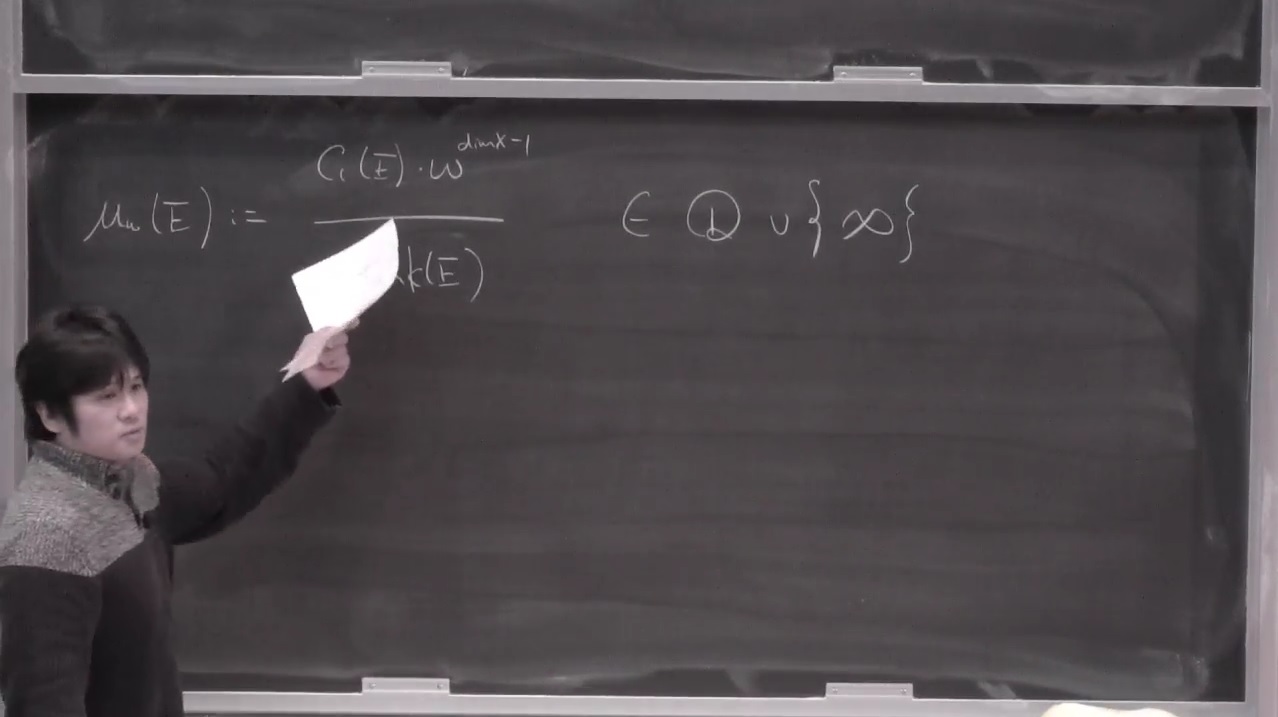 μ_ω(E) := C₁(E)·ω^{dim X−1} / k(E) ∈ ℚ ∪ {∞}